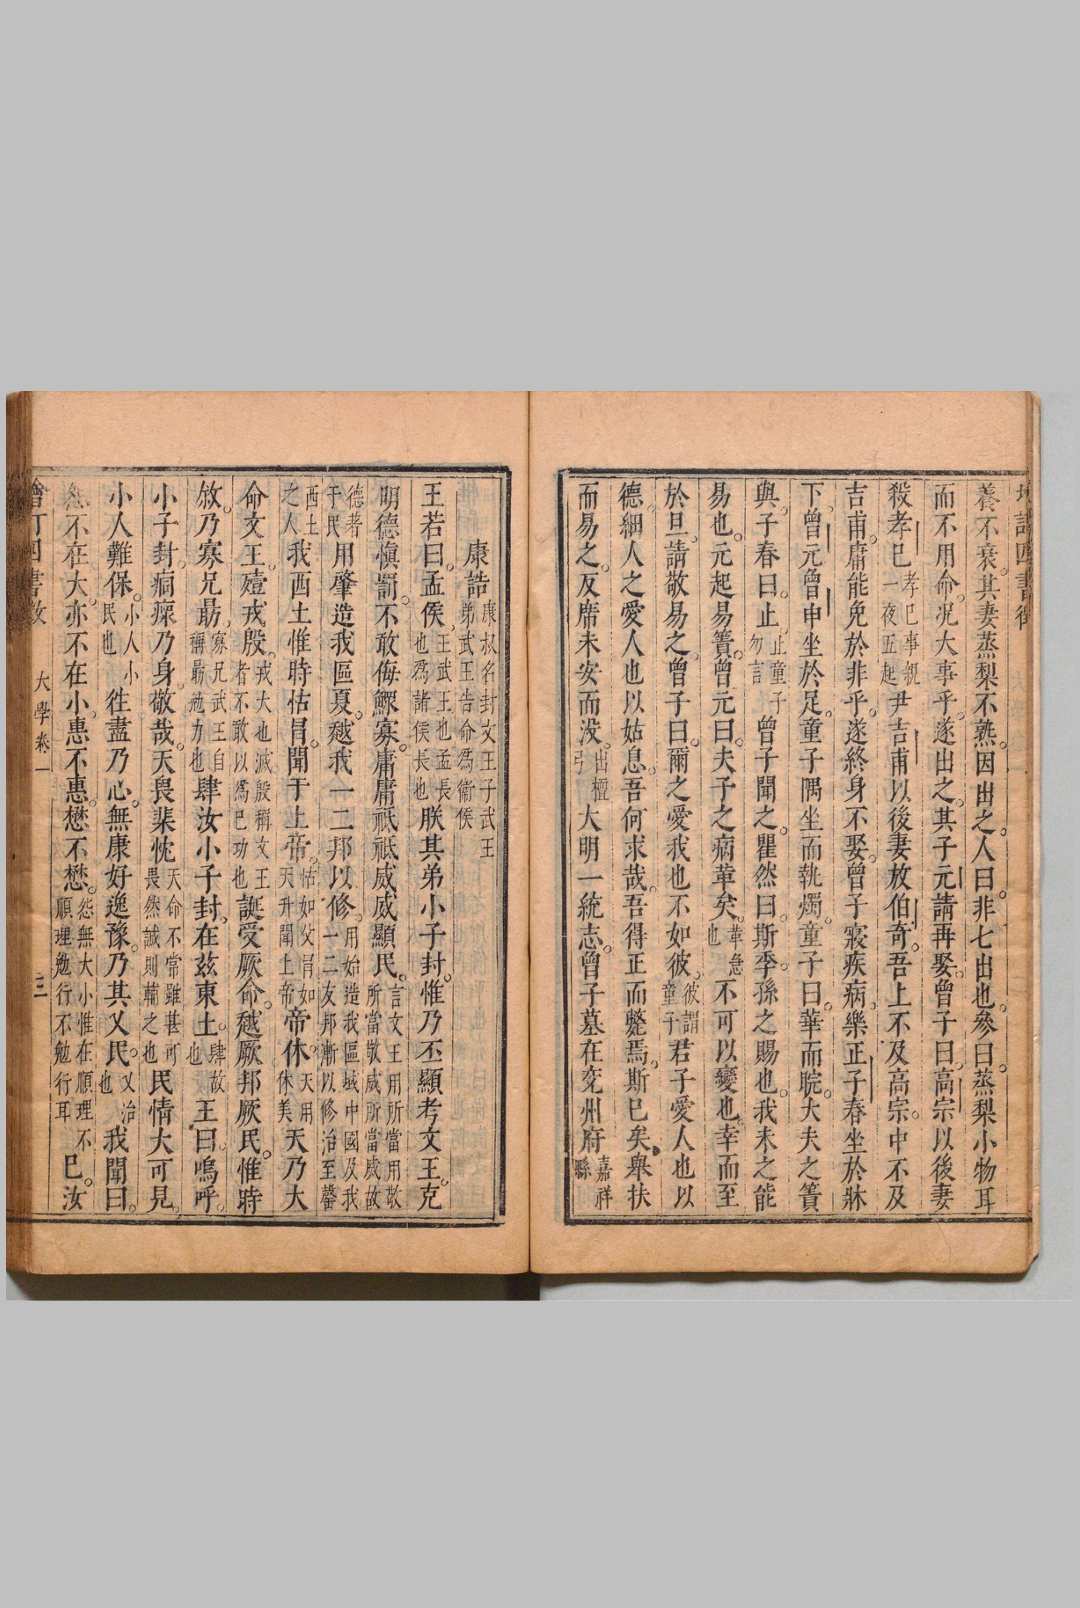 養不衰其妻蒸梨不熟因出之人曰非七出也參曰蒸梨小物耳
而不用命况大事乎遂出之其子元請再娶曾子曰高宗以後妻
殺孝巳孝巳事親一夜五起尹吉甫以後妻放伯奇吾上不及高宗中不及
吉甫庸能免於非乎遂終身不娶曾子寢疾病樂正子春坐於牀
下曾元曾申坐於足童子隅坐而執燭童子曰華而睆大夫之簀
與子春曰止止童子勿言曾子聞之瞿然曰斯季孫之賜也我未之能
易也元起易簀曾元曰夫子之病革矣革急也不可以變也幸而至
於旦請敬易之曾子曰爾之愛我也不如彼彼謂童子君子愛人也以
德細人之愛人也以姑息吾何求哉吾得正而斃焉斯已矣舉扶
而易之反席未安而没出檀弓大明一統志曾子墓在兖州府嘉祥縣
康誥康叔名封文王子武王弟武王告命爲衞侯
王若曰孟侯王武王也孟長也爲諸侯長也朕其弟小子封惟乃丕顯考文王克
明德愼罰不敢侮鰥寡庸庸祗祗威威顯民言文王用所當用敬所當敬威所當威故德著于民
用肇造我區夏越我一二邦以修用始造我區域中國及我一二友邦漸以修治至罄西土之人
我西土惟時怙冒聞于上帝怙如父冒如天升聞上帝帝休天用休美天乃大
命文王殪戎殷戎大也滅殷稱文王者不敢以爲己功也誕受厥命越厥邦厥民惟時
敘乃寡兄勗寡兄武王自稱勗勉力也肆汝小子封在茲東土肆故也王曰嗚呼
小子封痌瘝乃身敬哉天畏棐忱天命不常雖甚可畏然誠則輔之也民情大可見
小人難保小人小民也往盡乃心無康好逸豫乃其乂民乂治也我聞曰
怨不在大亦不在小惠不惠懋不懋怨無大小惟在順理不順理勉行不勉行耳巳汝
大學卷一
三